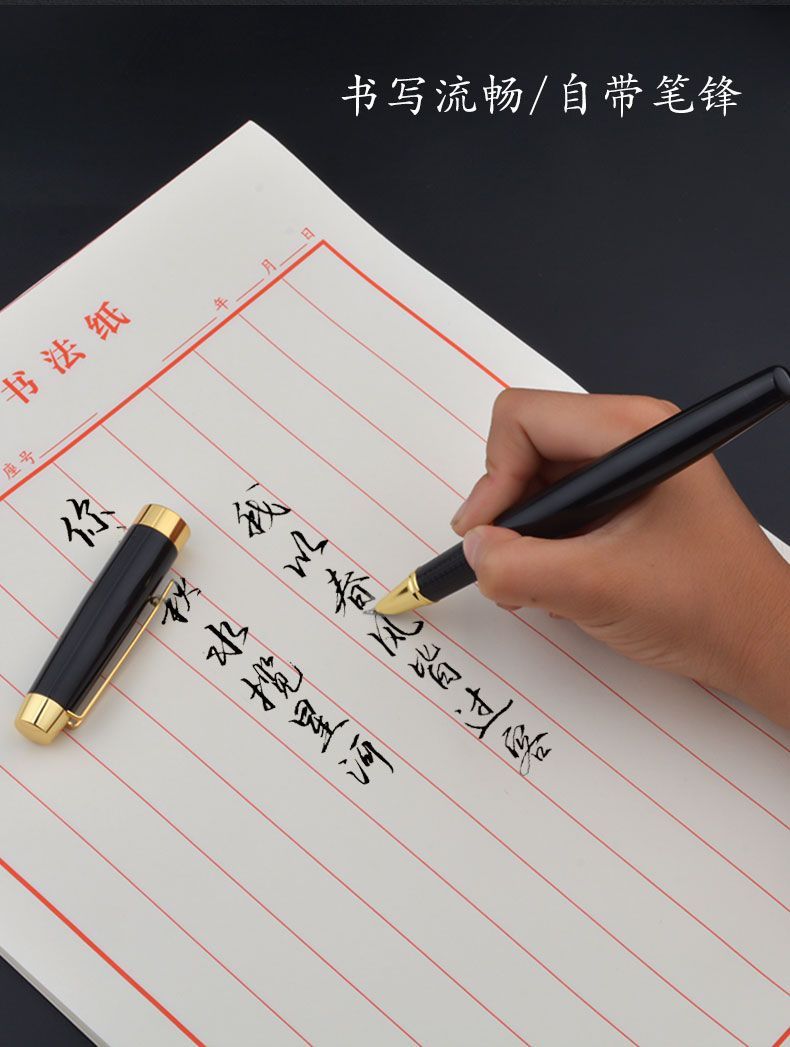 书写流畅/自带笔锋
书法纸
年 月 日
座号
我以春风皆过客
你 秋水揽星河